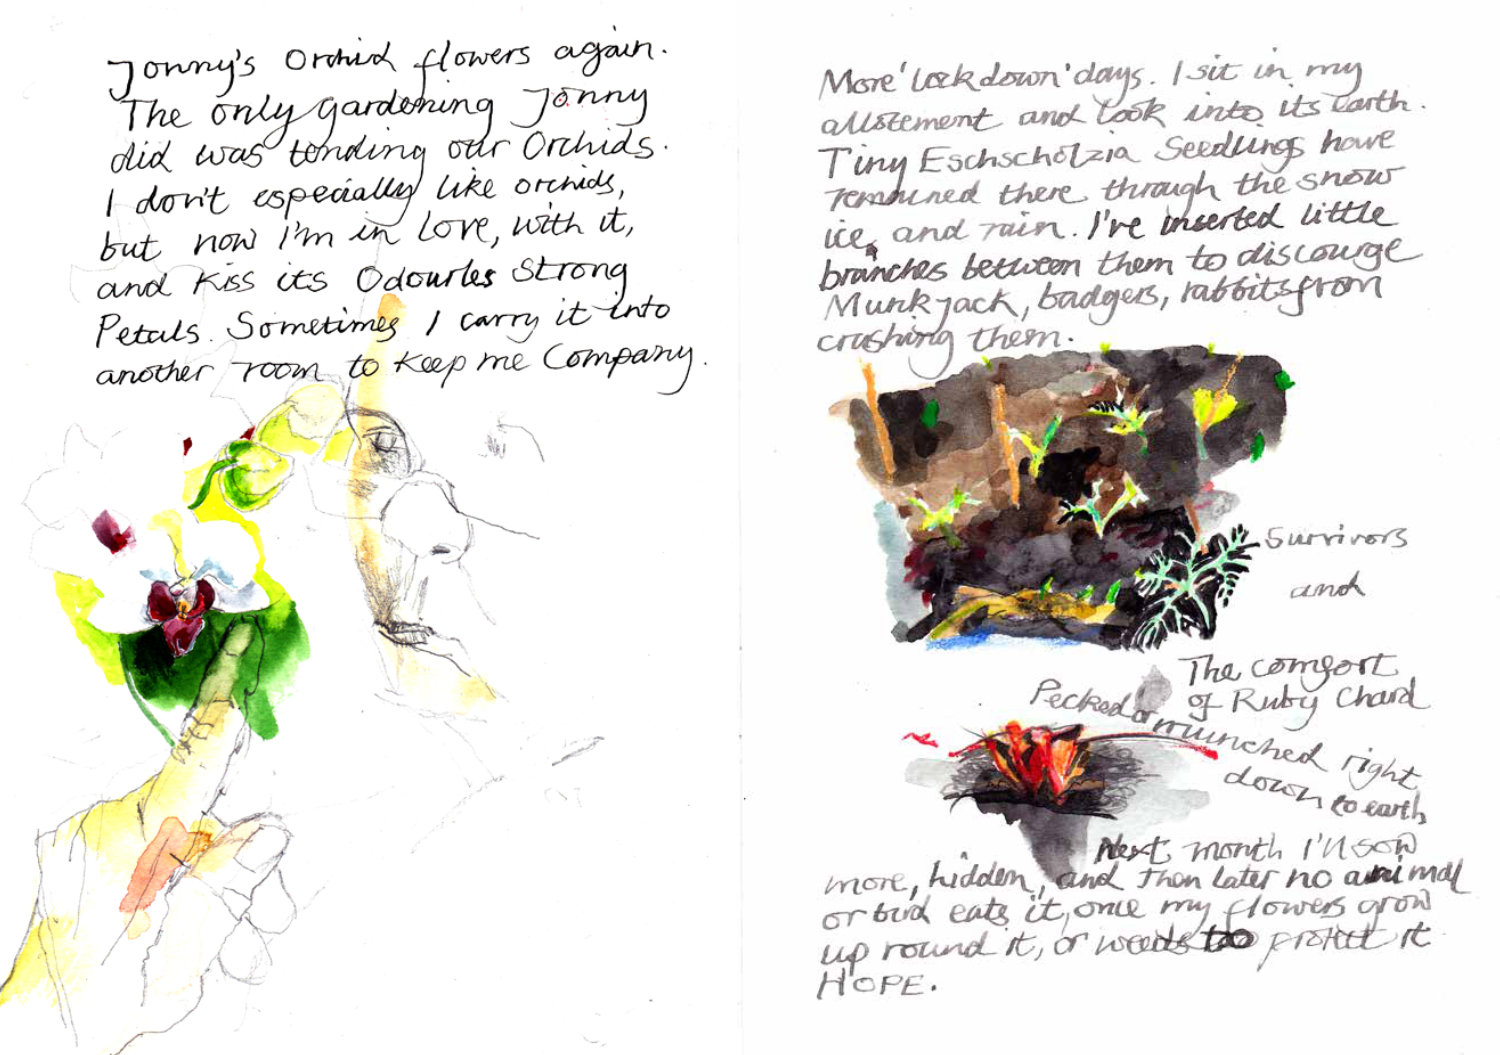 Jonny's Orchid flowers again.
The only gardening Jonny
did was tending our Orchids.
I don't especially like orchids,
but now I'm in love, with it,
and kiss its Odourles Strong
Petals. Sometimes I carry it into
another room to keep me Company.
More 'lockdown' days. I sit in my
allotement and look into its earth.
Tiny Eschscholzia Seedlings have
remained there through the snow
ice, and rain. I've inserted little
branches between them to discourge
Munkjack, badgers, rabbits from
crushing them.
Survivors
and
The comfort
of Ruby Chard
Pecked or munched right
down to earth
Next month I'll sow
more, hidden, and then later no animal
or bird eats it, once my flowers grow
up round it, or weeds too protect it
HOPE.